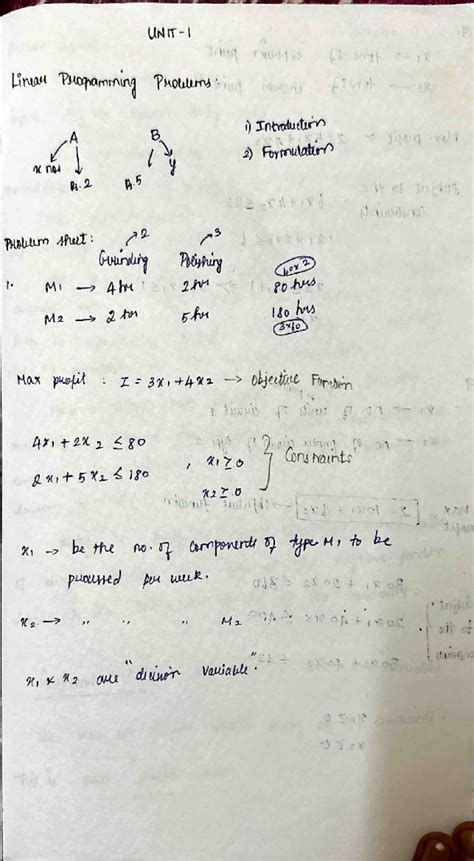 UNIT-1
Linear Programming Problems:
A B 1) Introduction
x nos y 2) Formulation
Rs. 2 Rs. 5
Problem sheet: 2 3
Grinding Polishing 40x2
1. M1 → 4 hr 2 hrs 80 hrs
M2 → 2 hrs 5 hrs 180 hrs
3x60
Max profit : Z = 3x1 + 4x2 → Objective Function
4x1 + 2x2 ≤ 80
2x1 + 5x2 ≤ 180 , x1 ≥ 0 } Constraints
x2 ≥ 0
x1 → be the no. of components of type M1 to be
processed per week.
x2 → " " " M2
x1 & x2 are "decision variable".